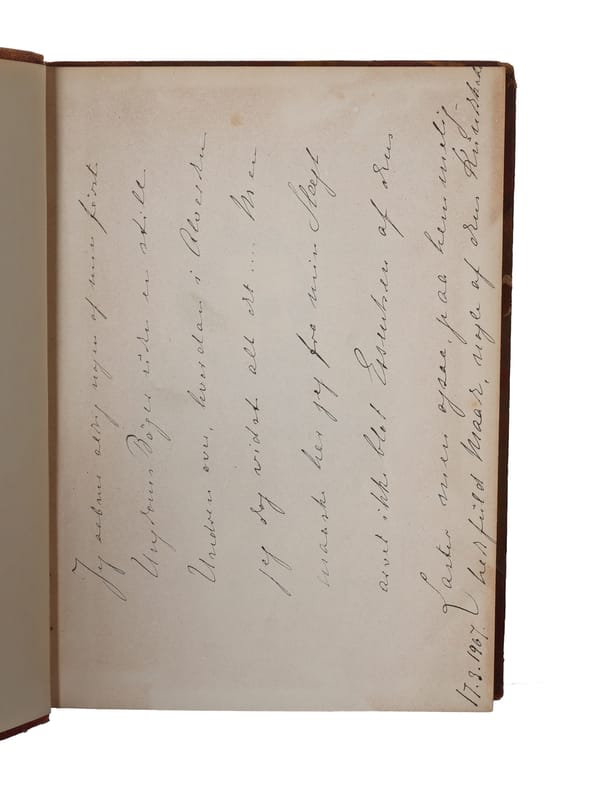 Jeg aabner aldrig nogen af mine først
Ungdoms Bøger uden en stille
Undren over, hvordan i Alverden
jeg dog vidste alt det .... Men
maaske har jeg fra min Slægt
arvet ikke blot Essentsen af dens
Laster men ogsaa, paa hemmelig-
hedsfuld Maade, nogle af dens Kundskaber
17.3.1907.